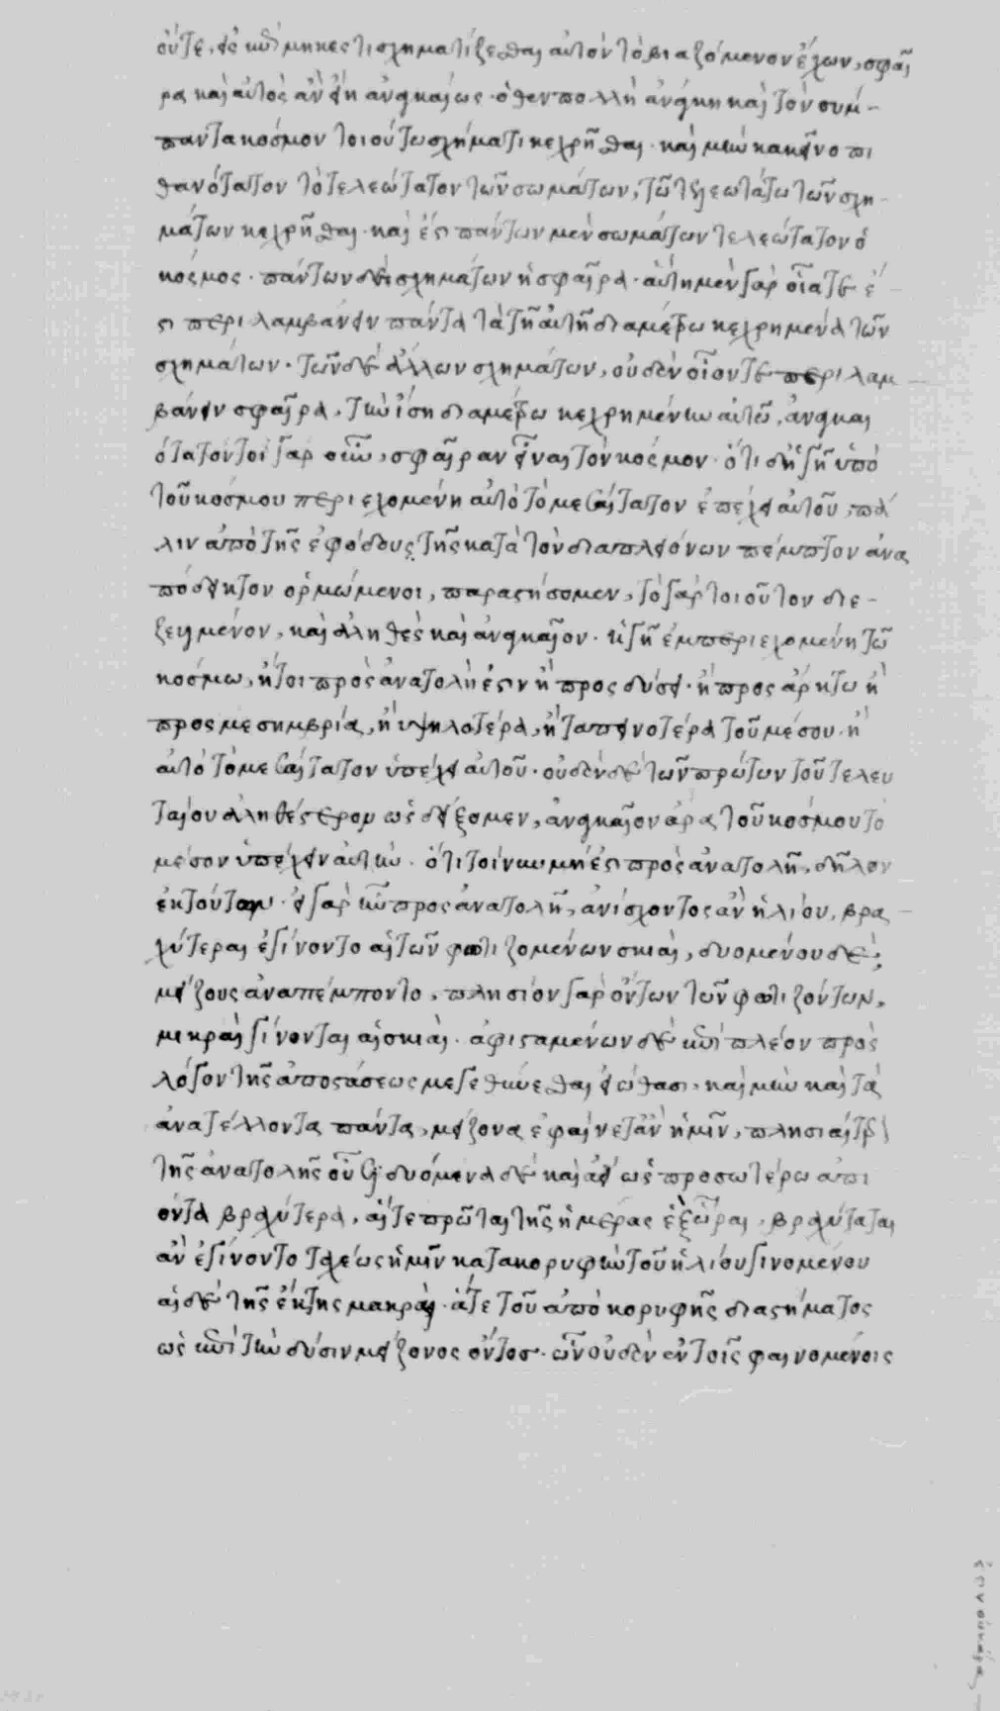 οὔτε, εἰς ἐπίμηκες τι σχηματίζεσθαι αὐτὸν τὸ βιαζόμενον ἔχων, σφαῖ
ρα καὶ αὐτὸς ἂν εἴη ἀναγκαίως· ὅθεν πολλὴ ἀνάγκη καὶ τὸν σύμ-
παντα κόσμον τοιούτω σχήματι κεχρῆσθαι· καὶ μὴν κἀκεῖνο πι
θανότατον τὸ τελεώτατον τῶν σωμάτων, τῶ τελεωτάτω τῶν σχη-
μάτων κεχρῆσθαι· καὶ ἔστι πάντων μὲν σωμάτων τελεώτατον ὁ
κόσμος· πάντων δὲ σχημάτων ἡ σφαῖρα· αὕτη μὲν γὰρ οἷα τέ ἐ
στι περιλαμβάνειν πάντα τὰ τῇ αὐτῇ διαμέτρω κεχρημένα τῶν
σχημάτων· τῶν δὲ ἄλλων σχημάτων, οὐδὲν οἷόν τε περιλαμ
βάνειν σφαῖρα, τὴν ἴση διαμέτρω κεχρημένην αὐτῶ, ἀναγκαι
ότατόν τοι γὰρ οὖν, σφαῖραν εἶναι τὸν κόσμον· ὅτι δὴ ἡ γῆ ὑπὸ
τοῦ κόσμου περιεχομένη αὐτὸ τὸ μεσαίτατον ἐπέχει αὐτοῦ, πά
λιν ἀπὸ τῆς ἐφόδους τῆς κατὰ τὸν διαπλειόνων πέμπτον ἀνα
πόδεικτον ὁρμώμενοι, παραστήσομεν, τὸ γὰρ τοιοῦτον διε-
ζευγμένον, καὶ ἀληθὲς καὶ ἀναγκαῖον· ἡ γῆ ἐμπεριεχομένη τῶ
κόσμω, ἤτοι πρὸς ἀνατολή ἐστιν ἢ προς δύσει· ἢ προς ἄρκτω ἢ
προς μεσημβρία, ἢ ὑψηλοτέρα, ἢ ταπεινοτέρα τοῦ μέσου· ἢ
αὐτὸ τὸ μεσαίτατον ὑπέχει αὐτοῦ· οὐδὲν δὲ τῶν πρώτων τοῦ τελευ
ταίου ἀληθέστερον ὡς δείξομεν, ἀναγκαῖον ἄρα τοῦ κόσμου τὸ
μέσον ὑπέχειν αὐτὴν· ὅτι τοίνυν μή ἐστι πρὸς ἀνατολῇ, δῆλον
ἐκ τούτων· εἰ γὰρ ἦν προς ἀνατολῇ, ἀνίσχοντος ἂν ἡλίου, βρα
χύτεραι ἐγίνοντο αἱ τῶν φωτιζομένων σκιαὶ, δυομένου δὲ
μείζους ἀναπέμποντο, πλησίον γὰρ ὄντων τῶν φωτιζόντων,
μικραὶ γίνονται αἱ σκιαὶ· ἀφισταμένων δὲ ἐπὶ πλέον πρὸς
λόγον τῆς ἀποστάσεως μεγεθύνεσθαι εἰώθασι· καὶ μὴν καὶ τὰ
ἀνατέλλοντα πάντα, μείζονα ἐφαίνετ' ἂν ἡμῖν, πλησιαίτε
τῆς ἀνατολῆς οὖσι δυόμενα δὲ καὶ ἀεὶ ὡς προσωτέρω ἀπι
όντα βραχύτερα, αἵ τε πρῶται τῆς ἡμέρας ἓξ ὧραι, βραχύταται
ἂν ἐγίνοντο ταχέως ἡμῖν κατακορυφὴν τοῦ ἡλίου γινομένου
αἱ δὲ τῆς ἕκτης μακραὶ· ἅτε τοῦ ἀπὸ κορυφῆς διαστήματος
ὡς ἐπὶ τὴν δύσιν μείζονος ὄντος· ὧν οὐδὲν ἐν τοῖς φαινομένοις